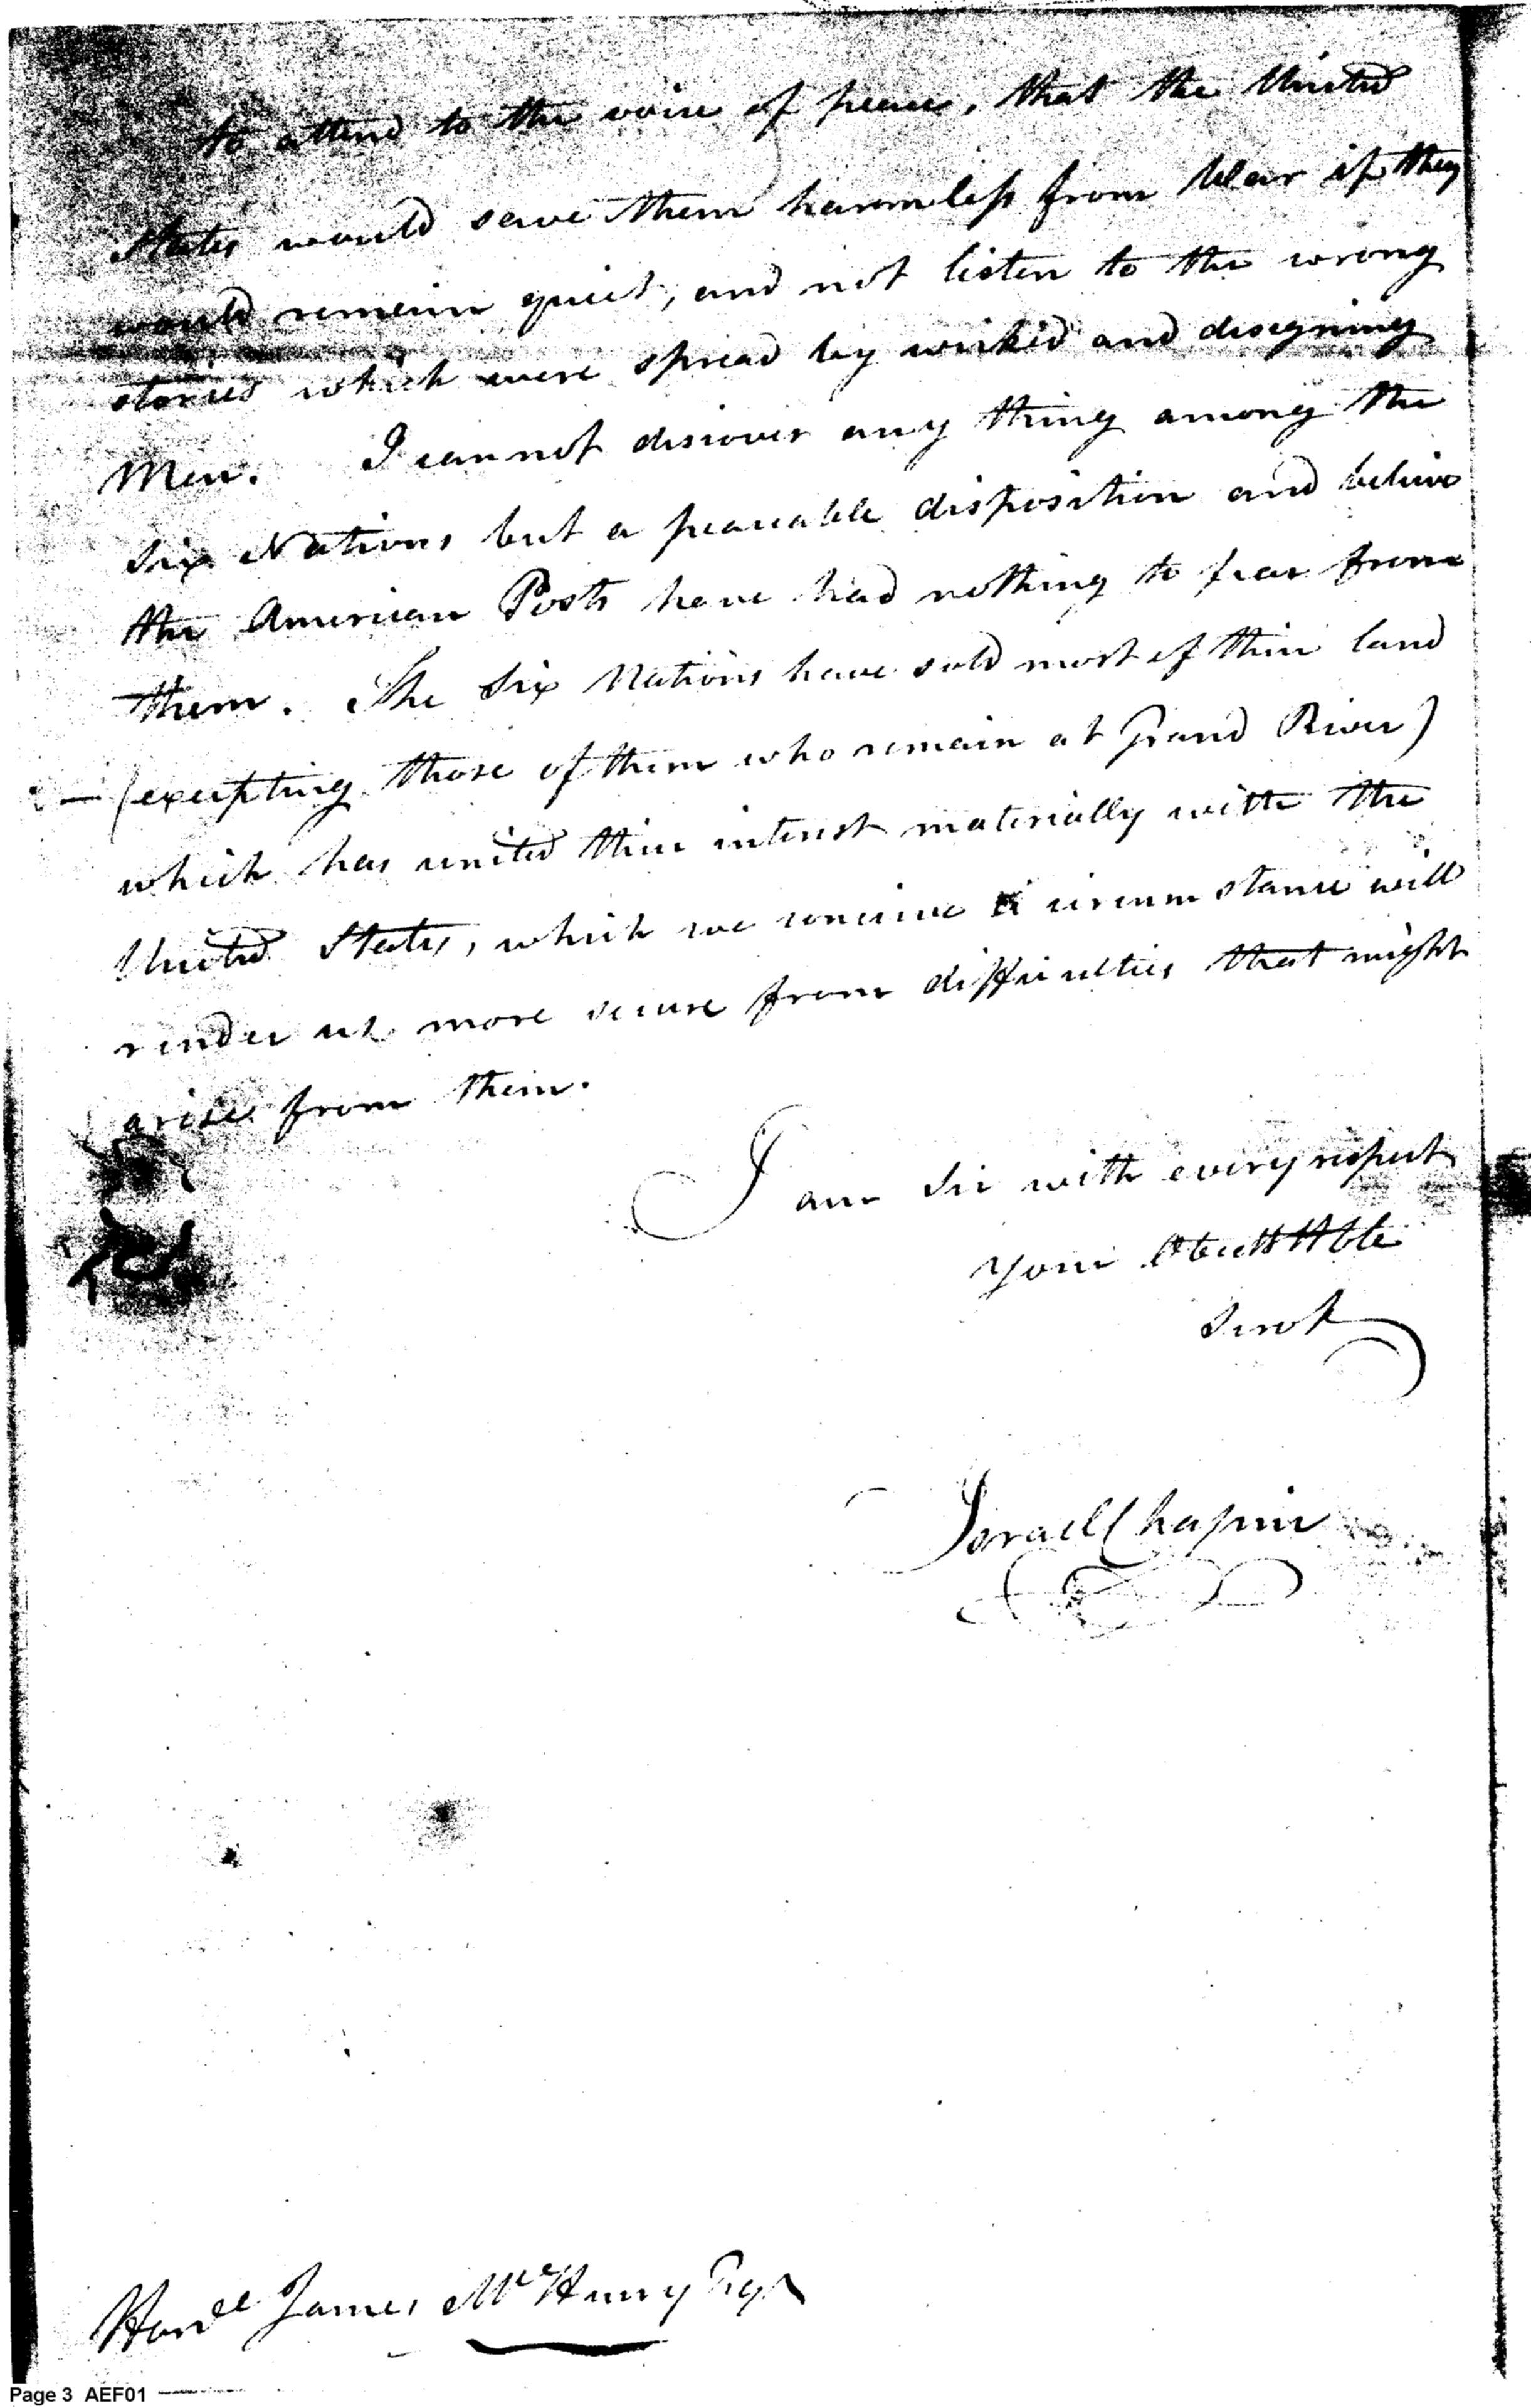 to attend to the voice of peace, that the United
States would save them harmless from War if they
would remain quiet, and not listen to the wrong
stories which were spread by wicked and designing
Men. I cannot discover any thing among the
Six Nations but a peaceable disposition and believe
the American Posts have had nothing to fear from
them. The Six Nations have sold most of their land
— (excepting those of them who remain at Grand River)
which has united their interest materially with the
United States, which we conceive circumstance will
render us more secure from difficulties that might
arise from them.
I am Sir with every respect
your Obedt Hble
Servt
Israel Chapin
Honble James McHenry Esqr
Page 3 AEF01